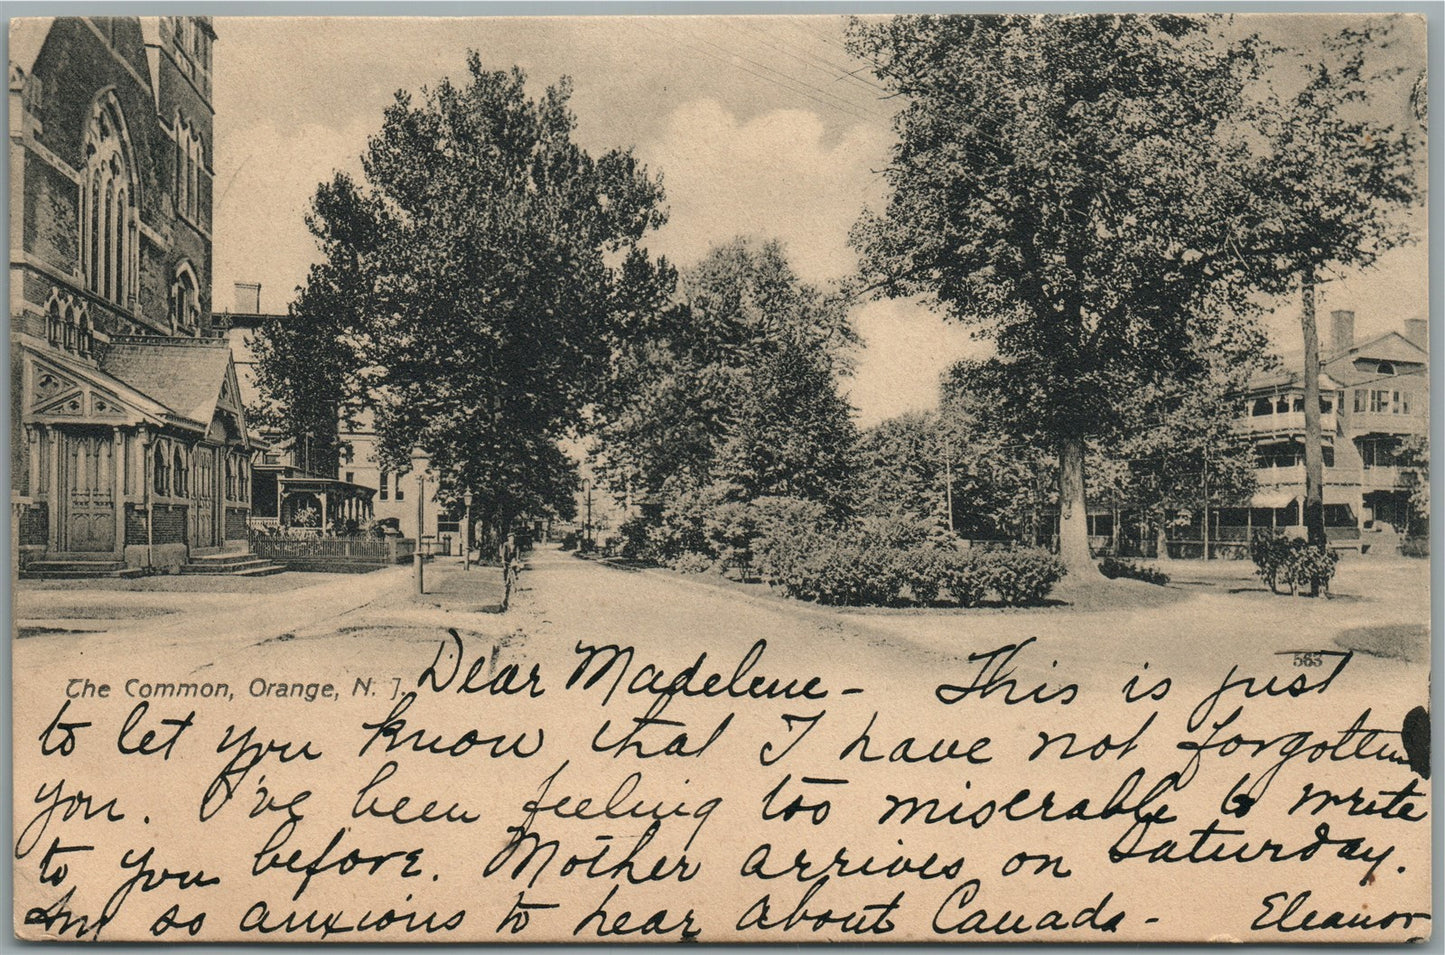 563
The Common, Orange, N. J.
Dear Madelene - This is just
to let you know that I have not forgotten
you. I've been feeling too miserable to write
to you before. Mother arrives on Saturday.
Am so anxious to hear about Canada - Eleanor